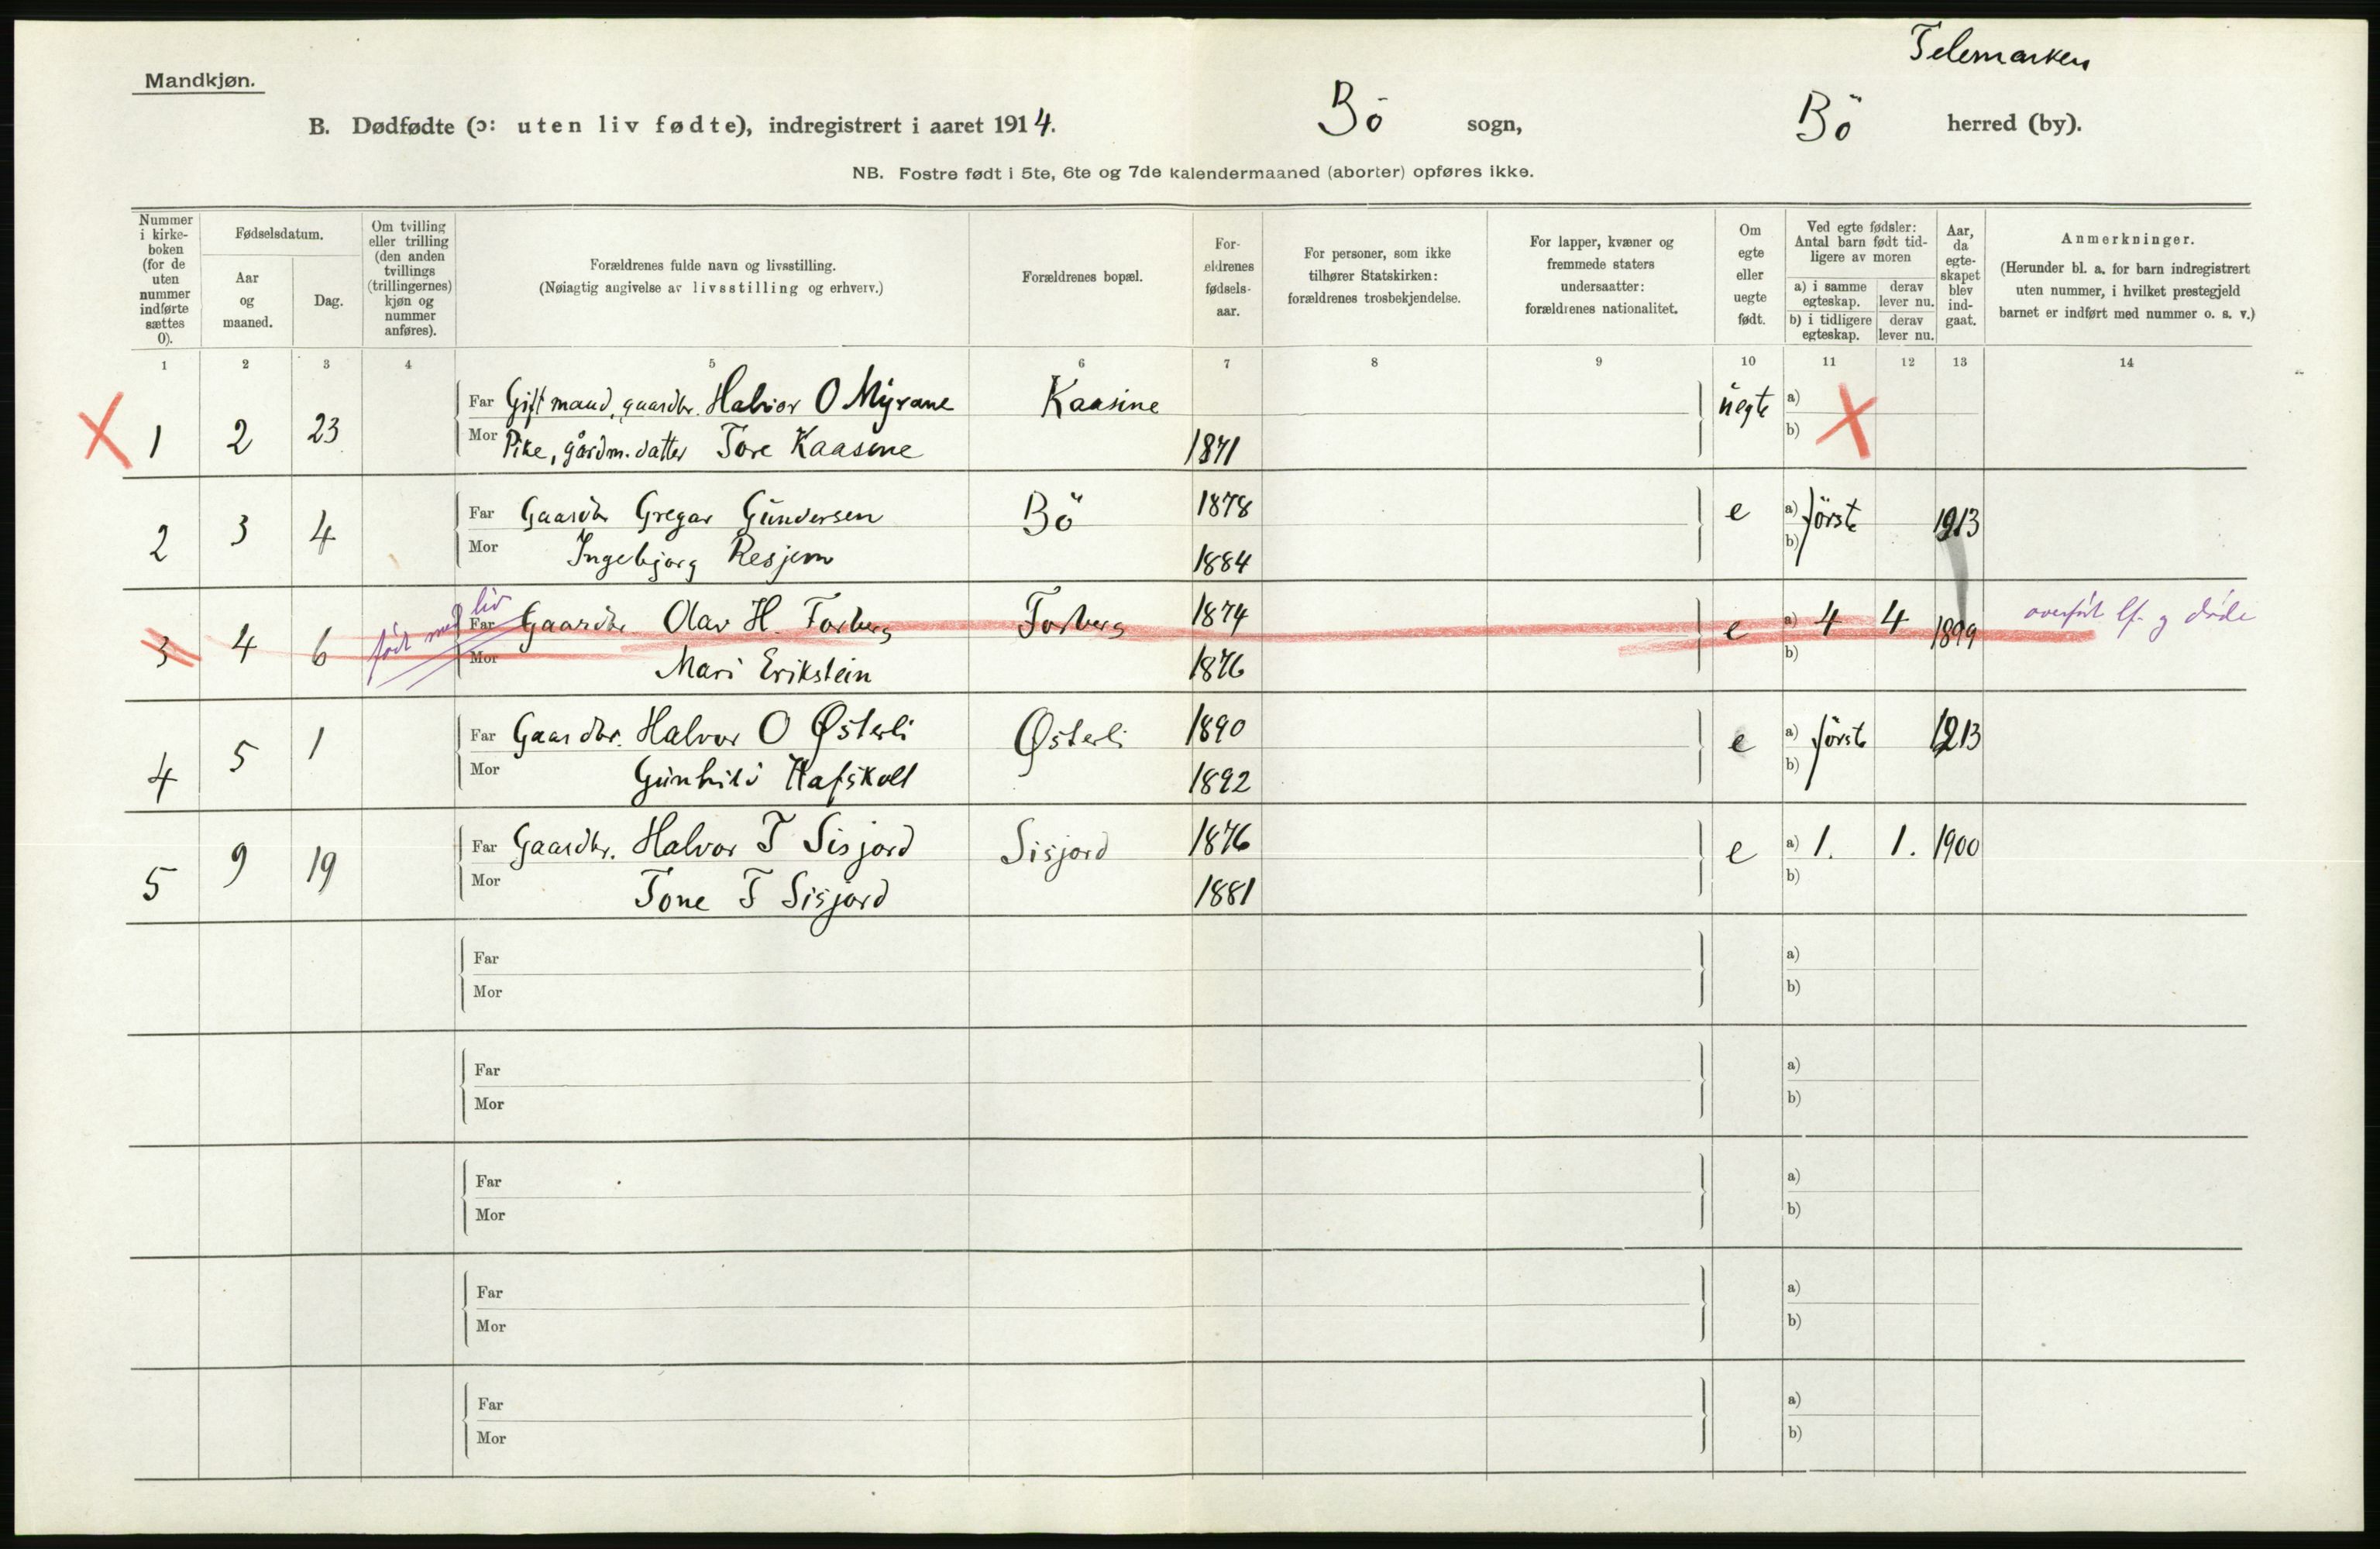 Telemarken
Mandkjøn.
B. Dødfødte (ɔ: uten liv fødte), indregistrert i aaret 1914. Bö sogn, Bö herred (by).
NB. Fostre født i 5te, 6te og 7de kalendermaaned (aborter) opføres ikke.
Nummer i kirke-boken (for de uten nummer indførte sættes 0).
Fødselsdatum.
Aar og maaned.
Dag.
Om tvilling eller trilling (den anden tvillings (trillingernes) kjøn og nummer anføres).
Forældrenes fulde navn og livsstilling.
(Nøiagtig angivelse av livsstilling og erhverv.)
Forældrenes bopæl.
For-ældrenes fødsels-aar.
For personer, som ikke tilhører Statskirken: forældrenes trosbekjendelse.
For lapper, kvæner og fremmede staters undersaatter: forældrenes nationalitet.
Om egte eller uegte født.
Ved egte fødsler: Antal barn født tid-ligere av moren
a) i samme egteskap. derav lever nu.
b) i tidligere egteskap. derav lever nu.
Aar, da egte-skapet blev ind-gaat.
Anmerkninger.
(Herunder bl. a. for barn indregistrert uten nummer, i hvilket prestegjeld barnet er indført med nummer o. s. v.)
1 2 3 4 5 6 7 8 9 10 11 12 13 14
X 1 2 23 Far Gift mand, gaardbr. Halvor O Myrane Kaasine uegte a) X
Mor Pike, gårdm. datter Tore Kaasine 1871 b)
2 3 4 Far Gaardbr Gregar Gundersen Bö 1878 e a) förste 1913
Mor Ingebjorg Resjem 1884 b)
3 4 6 født med liv Far Gaardbr. Olav H. Forberg Forberg 1874 e a) 4 4 1899 overført lf. g døde
Mor Mari Erikstein 1876 b)
4 5 1 Far Gaardbr. Halvor O Østerli Østerli 1890 e a) förste 1913
Mor Gunhild Hafskoll 1892 b)
5 9 19 Far Gaardbr. Halvor T Sisjord Sisjord 1876 e a) 1. 1. 1900
Mor Tone T Sisjord 1881 b)
Far a)
Mor b)
Far a)
Mor b)
Far a)
Mor b)
Far a)
Mor b)
Far a)
Mor b)